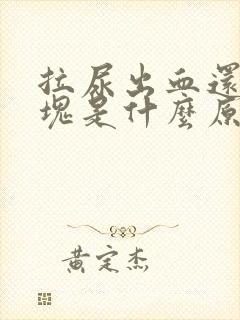 拉尿出血還
塊是什麼原
黃定杰